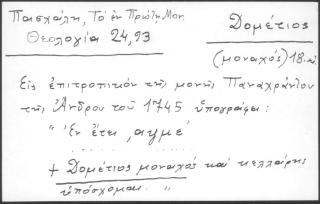 Πασχάλη, Τὸ ἐν Πρώτῃ Μον.
Θεολογία 24,93
Δομέτιος
(μοναχός) 18. αἰ.
Εἰς ἐπιτροπικὸν τῆς μονῆς Παναχράντου
τῆς Ἄνδρου τοῦ 1745 ὑπογράφει:
"Ἐν ἔτει ,αψμε΄
. . . . . . . . . .
+ Δομέτιος μοναχός καὶ κελλάρης
ὑπόσχομαι. "